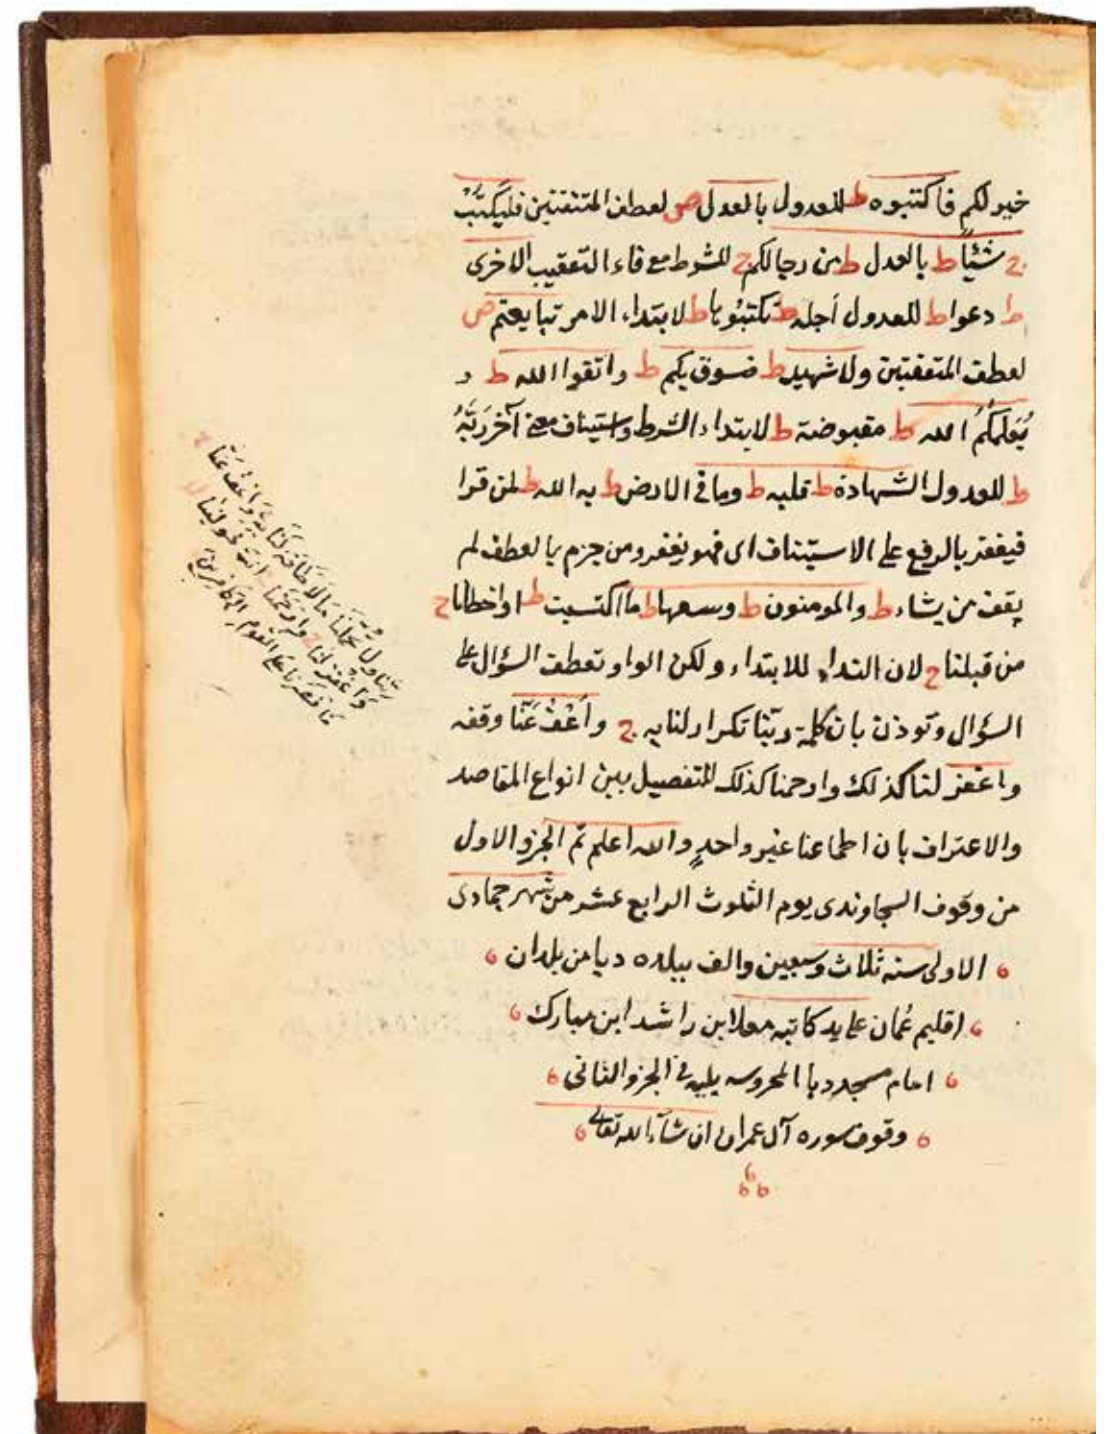 خير لكم فاكتبوه ط للعدول بالعدل ص لعطف المتفقتين فليكتب
ج شيئا ط بالعدل ط من رجالكم ج للشرط مع فاء التعقيب الاخرى
ط دعوا ط للعدول أجله ط تكتبوها ط لابتداء الامر تبايعتم ص
لعطف المتفقتين ولا شهيد ط فسوق بكم ط واتقوا الله ط و
يُعَلِّمُكُمُ الله ط مقبوضة ط لابتداء الشرط واستيناف معنى آخر رَبَّهُ
ط للعدول الشهادة ط قلبه ط وما في الارض ط به الله ط لمن قرا
فيغفر بالرفع على الاستيناف اى فهو يغفر ومن جزم بالعطف لم
يقف من يشاء ط والمومنون ط وسعها ط ما اكتسبت ط او اخطانا ج
من قبلنا ج لان النداء للابتداء ولكن الواو تعطف السؤال على
السؤال وتوذن بان كلمة ربّنا تكرار لنا به ج وَاعْفُ عَنَّا وقفه
واغفر لنا كذلك وارحمنا كذلك للتفصيل بين انواع المقاصد
والاعتراف بان اطماعنا غير واحدٍ والله اعلم تم الجزو الاول
من وقوف السجاوندى يوم الثلوث الرابع عشر من شهر جمادى
الاولى سنه ثلاث وسبعين والف ببلده دبا من بلدان
اقليم عُمان على يد كاتبه معلا ابن راشد ابن مبارك
امام مسجد دبا المحروسه يليه فى الجزو الثانى
وقوف سوره آل عمران ان شآء الله تعالى
رَبَّنَا وَلَا تُحَمِّلْنَا مَا لَا طَاقَةَ لَنَا بِهِ وَاعْفُ عَنَّا ج
وَاغْفِرْ لَنَا ج وَارْحَمْنَا انت مَولينا
فَانصُرْنَا عَلَى القَومِ الكَافِرينَ